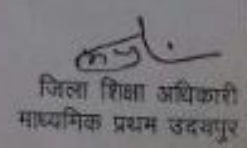 जिला शिक्षा अधिकारी
माध्यमिक प्रथम उदयपुर